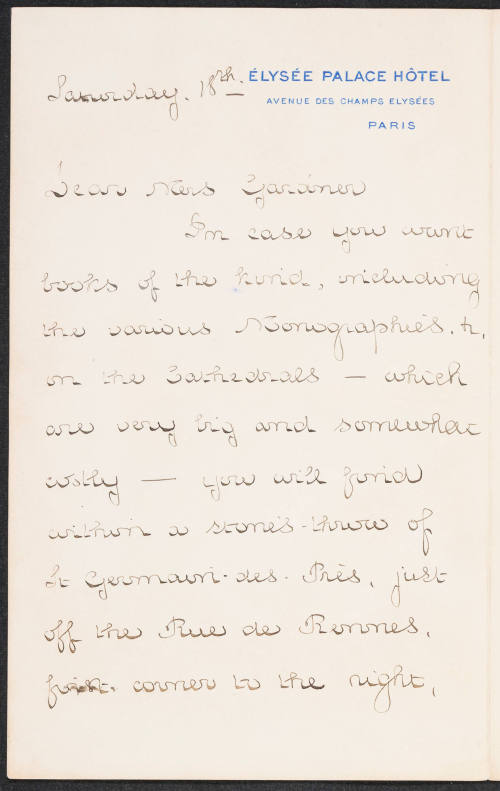 Saturday. 18th.
ÉLYSÉE PALACE HÔTEL
AVENUE DES CHAMPS ELYSÉES
PARIS
Dear Mrs Gardner
In case you want
books of the kind, including
the various Monographies. &,
on the Cathedrals — which
are very big and somewhat
costly — you will find
within a stone's-throw of
St Germain-des-Près, just
off the Rue de Rennes,
first corner to the right,